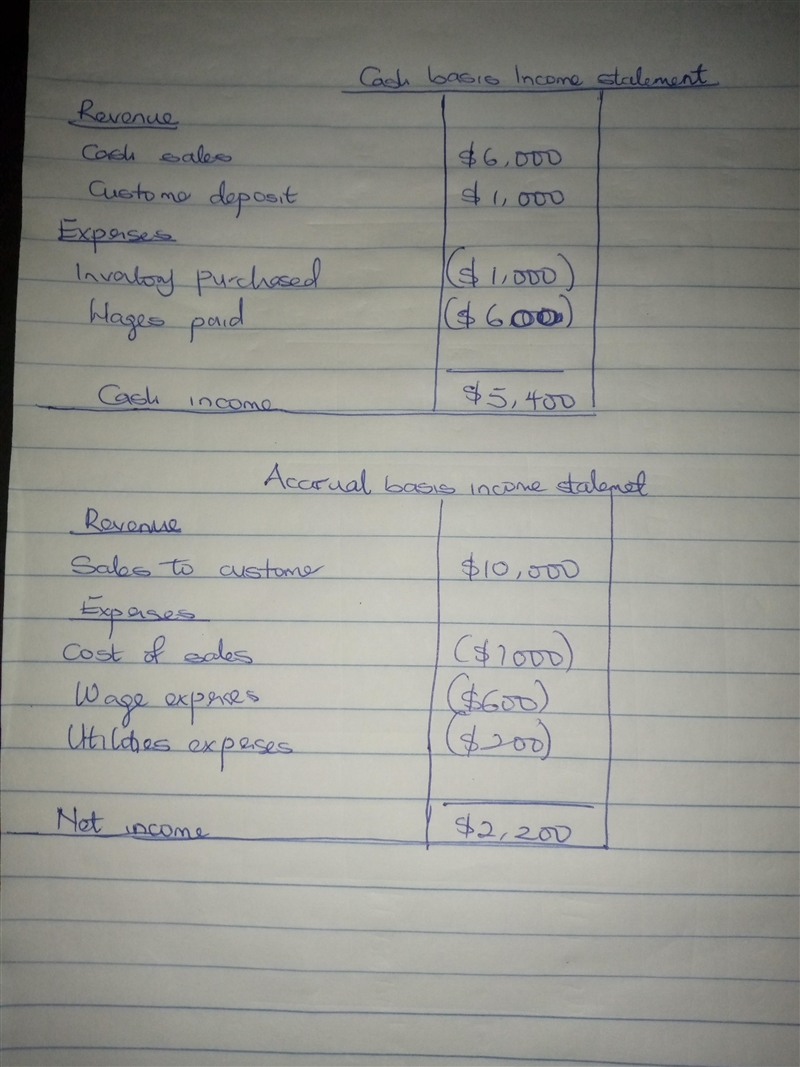 Cash basis Income statement
Revenue
Cash sales $6,000
Custome deposit $1,000
Expenses
Invatory purchased ($1,000)
Wages paid ($600)
Cash income $5,400
Accrual basis income statemet
Revenue
Sales to custome $10,000
Expeses
Cost of sales ($7000)
Wage expeses ($600)
Utilities expeses ($200)
Net income $2,200